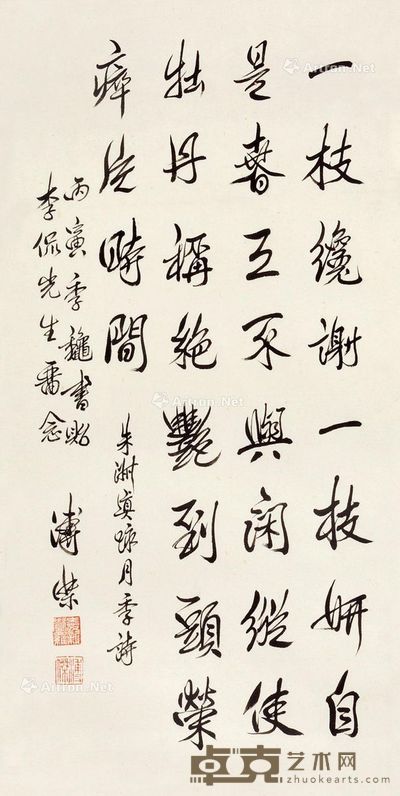 一枝纔謝一枝妍自
是春工不與閑縱使
牡丹稱絕豔到頭榮
瘁片時間
朱淑真詠月季詩
丙寅季龝書貽
李侃先生畱念
溥傑
Artron.Net
Artron.Net
Artron.Net
Artron.Net
卓克艺术网
zhuokearts.com